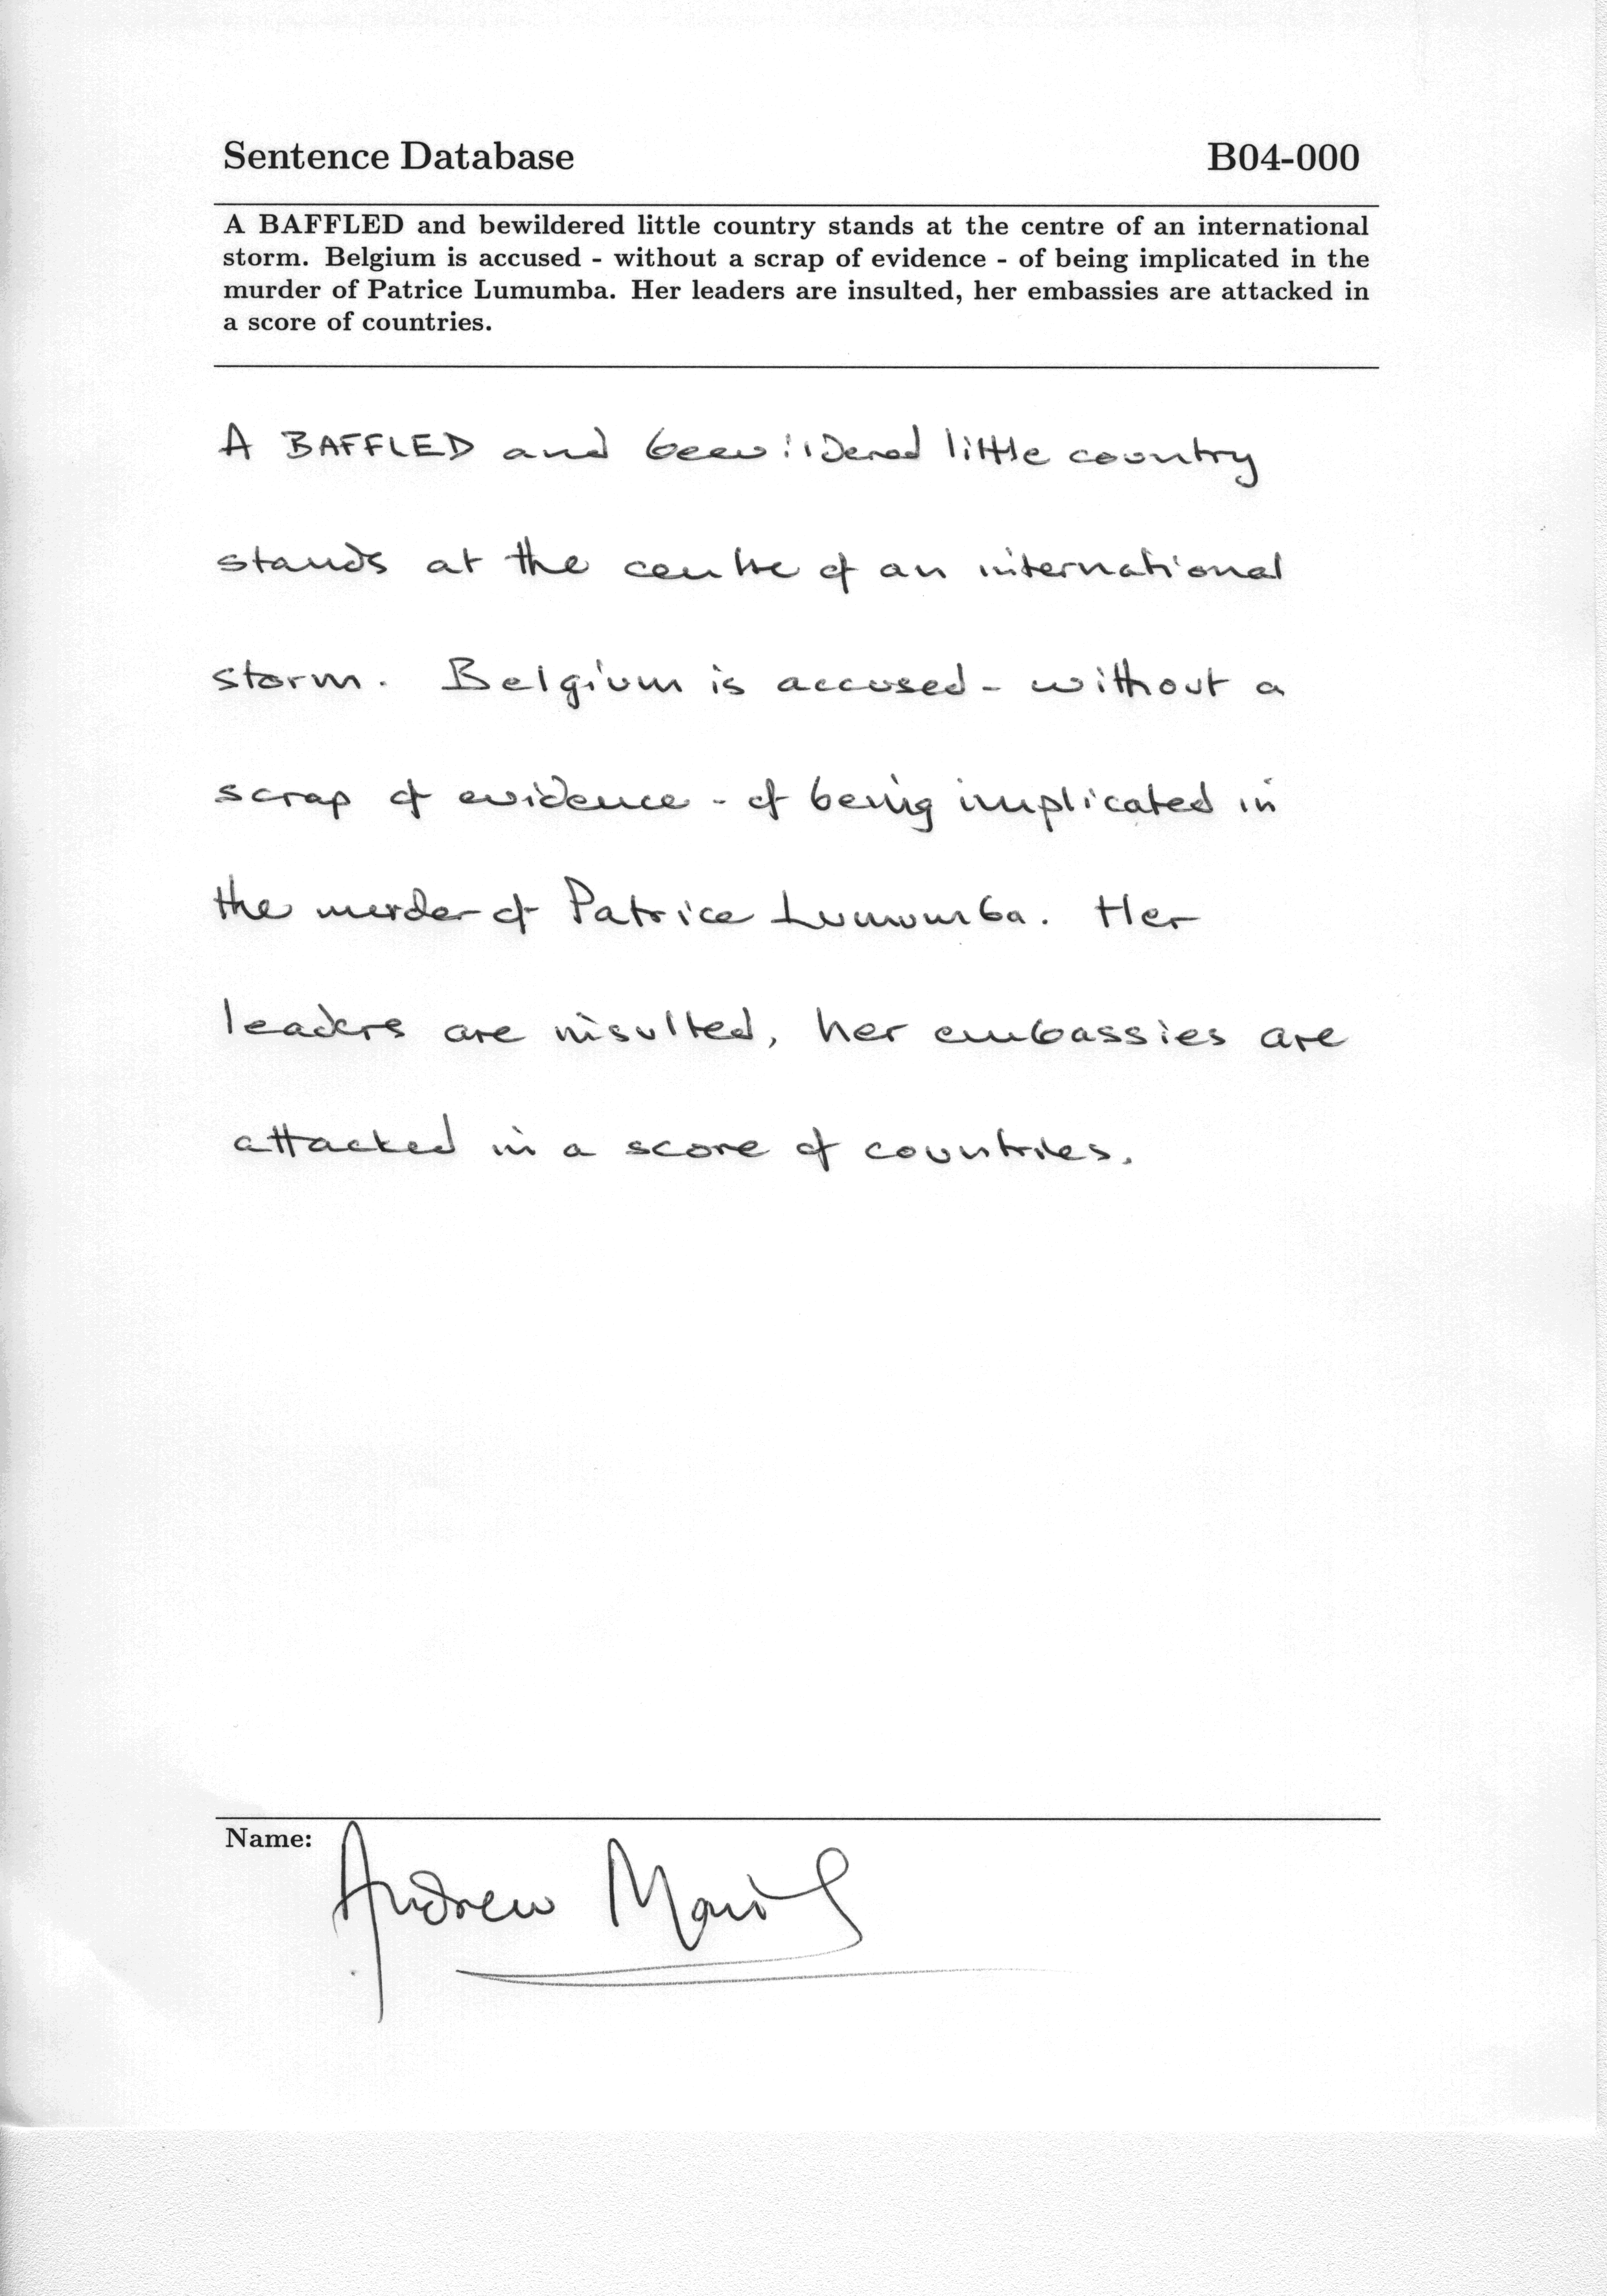 Sentence Database B04-000
A BAFFLED and bewildered little country stands at the centre of an international
storm. Belgium is accused - without a scrap of evidence - of being implicated in the
murder of Patrice Lumumba. Her leaders are insulted, her embassies are attacked in
a score of countries.
A BAFFLED and beewildered little country
stands at the centre of an international
storm. Belgium is accused - without a
scrap of evidence - of being implicated in
the murder of Patrice Lumumba. Her
leaders are insulted, her embassies are
attacked in a score of countries.
Name: Andrew